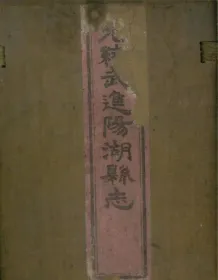 光緒武進陽湖縣志